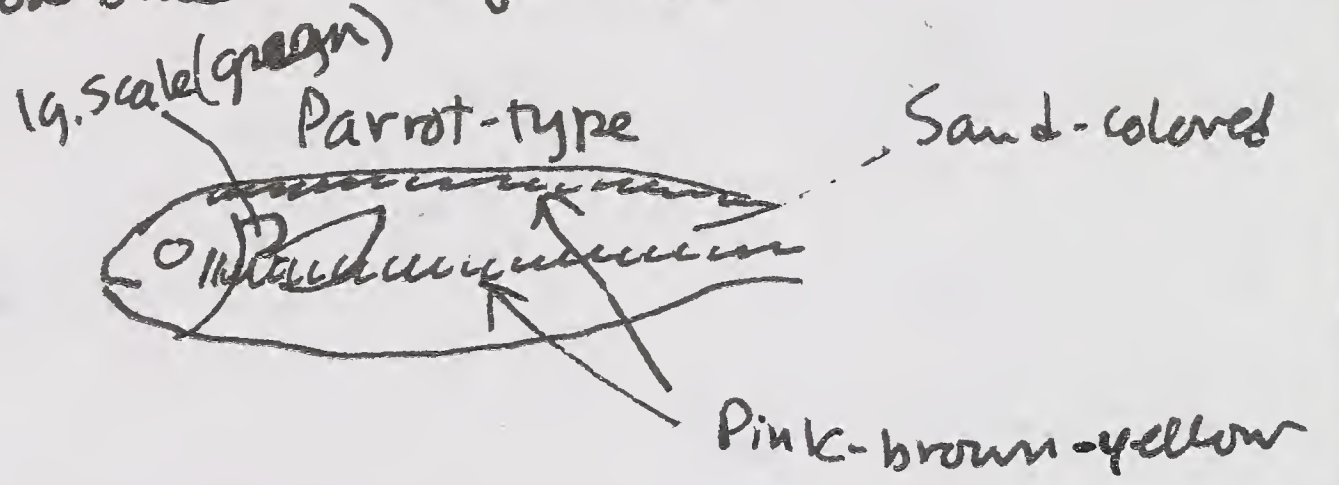 lg. scale (green)
Parrot-type
Sand-colored
Pink-brown-yellow